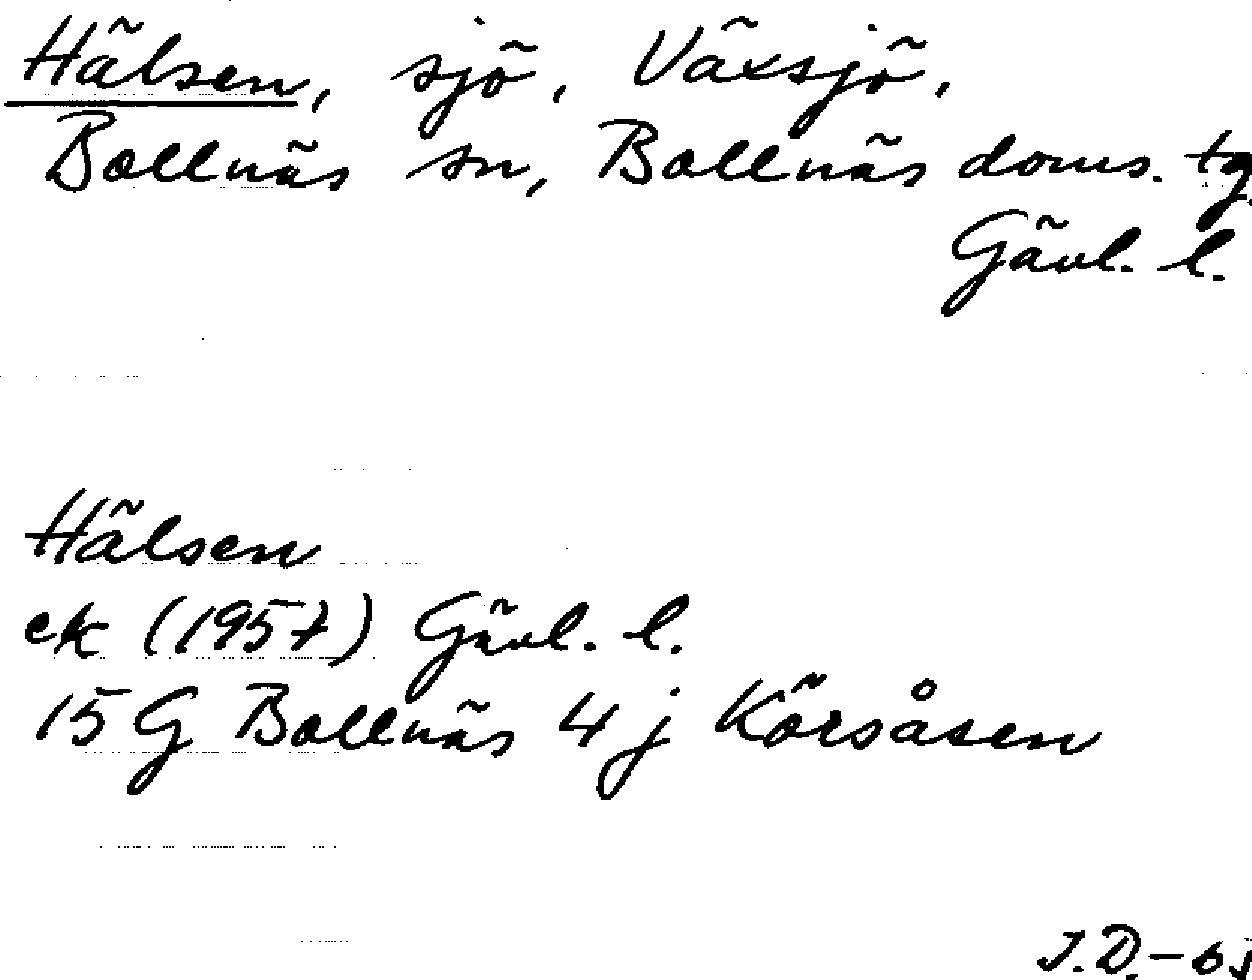 Hälsen, sjö, Växsjö,
Bollnäs sn, Bollnäs doms. tg
Gävl. l.
Hälsen
ek (1957) Gävl. l.
15 G Bollnäs 4 j Körsåsen
J.D.-sj